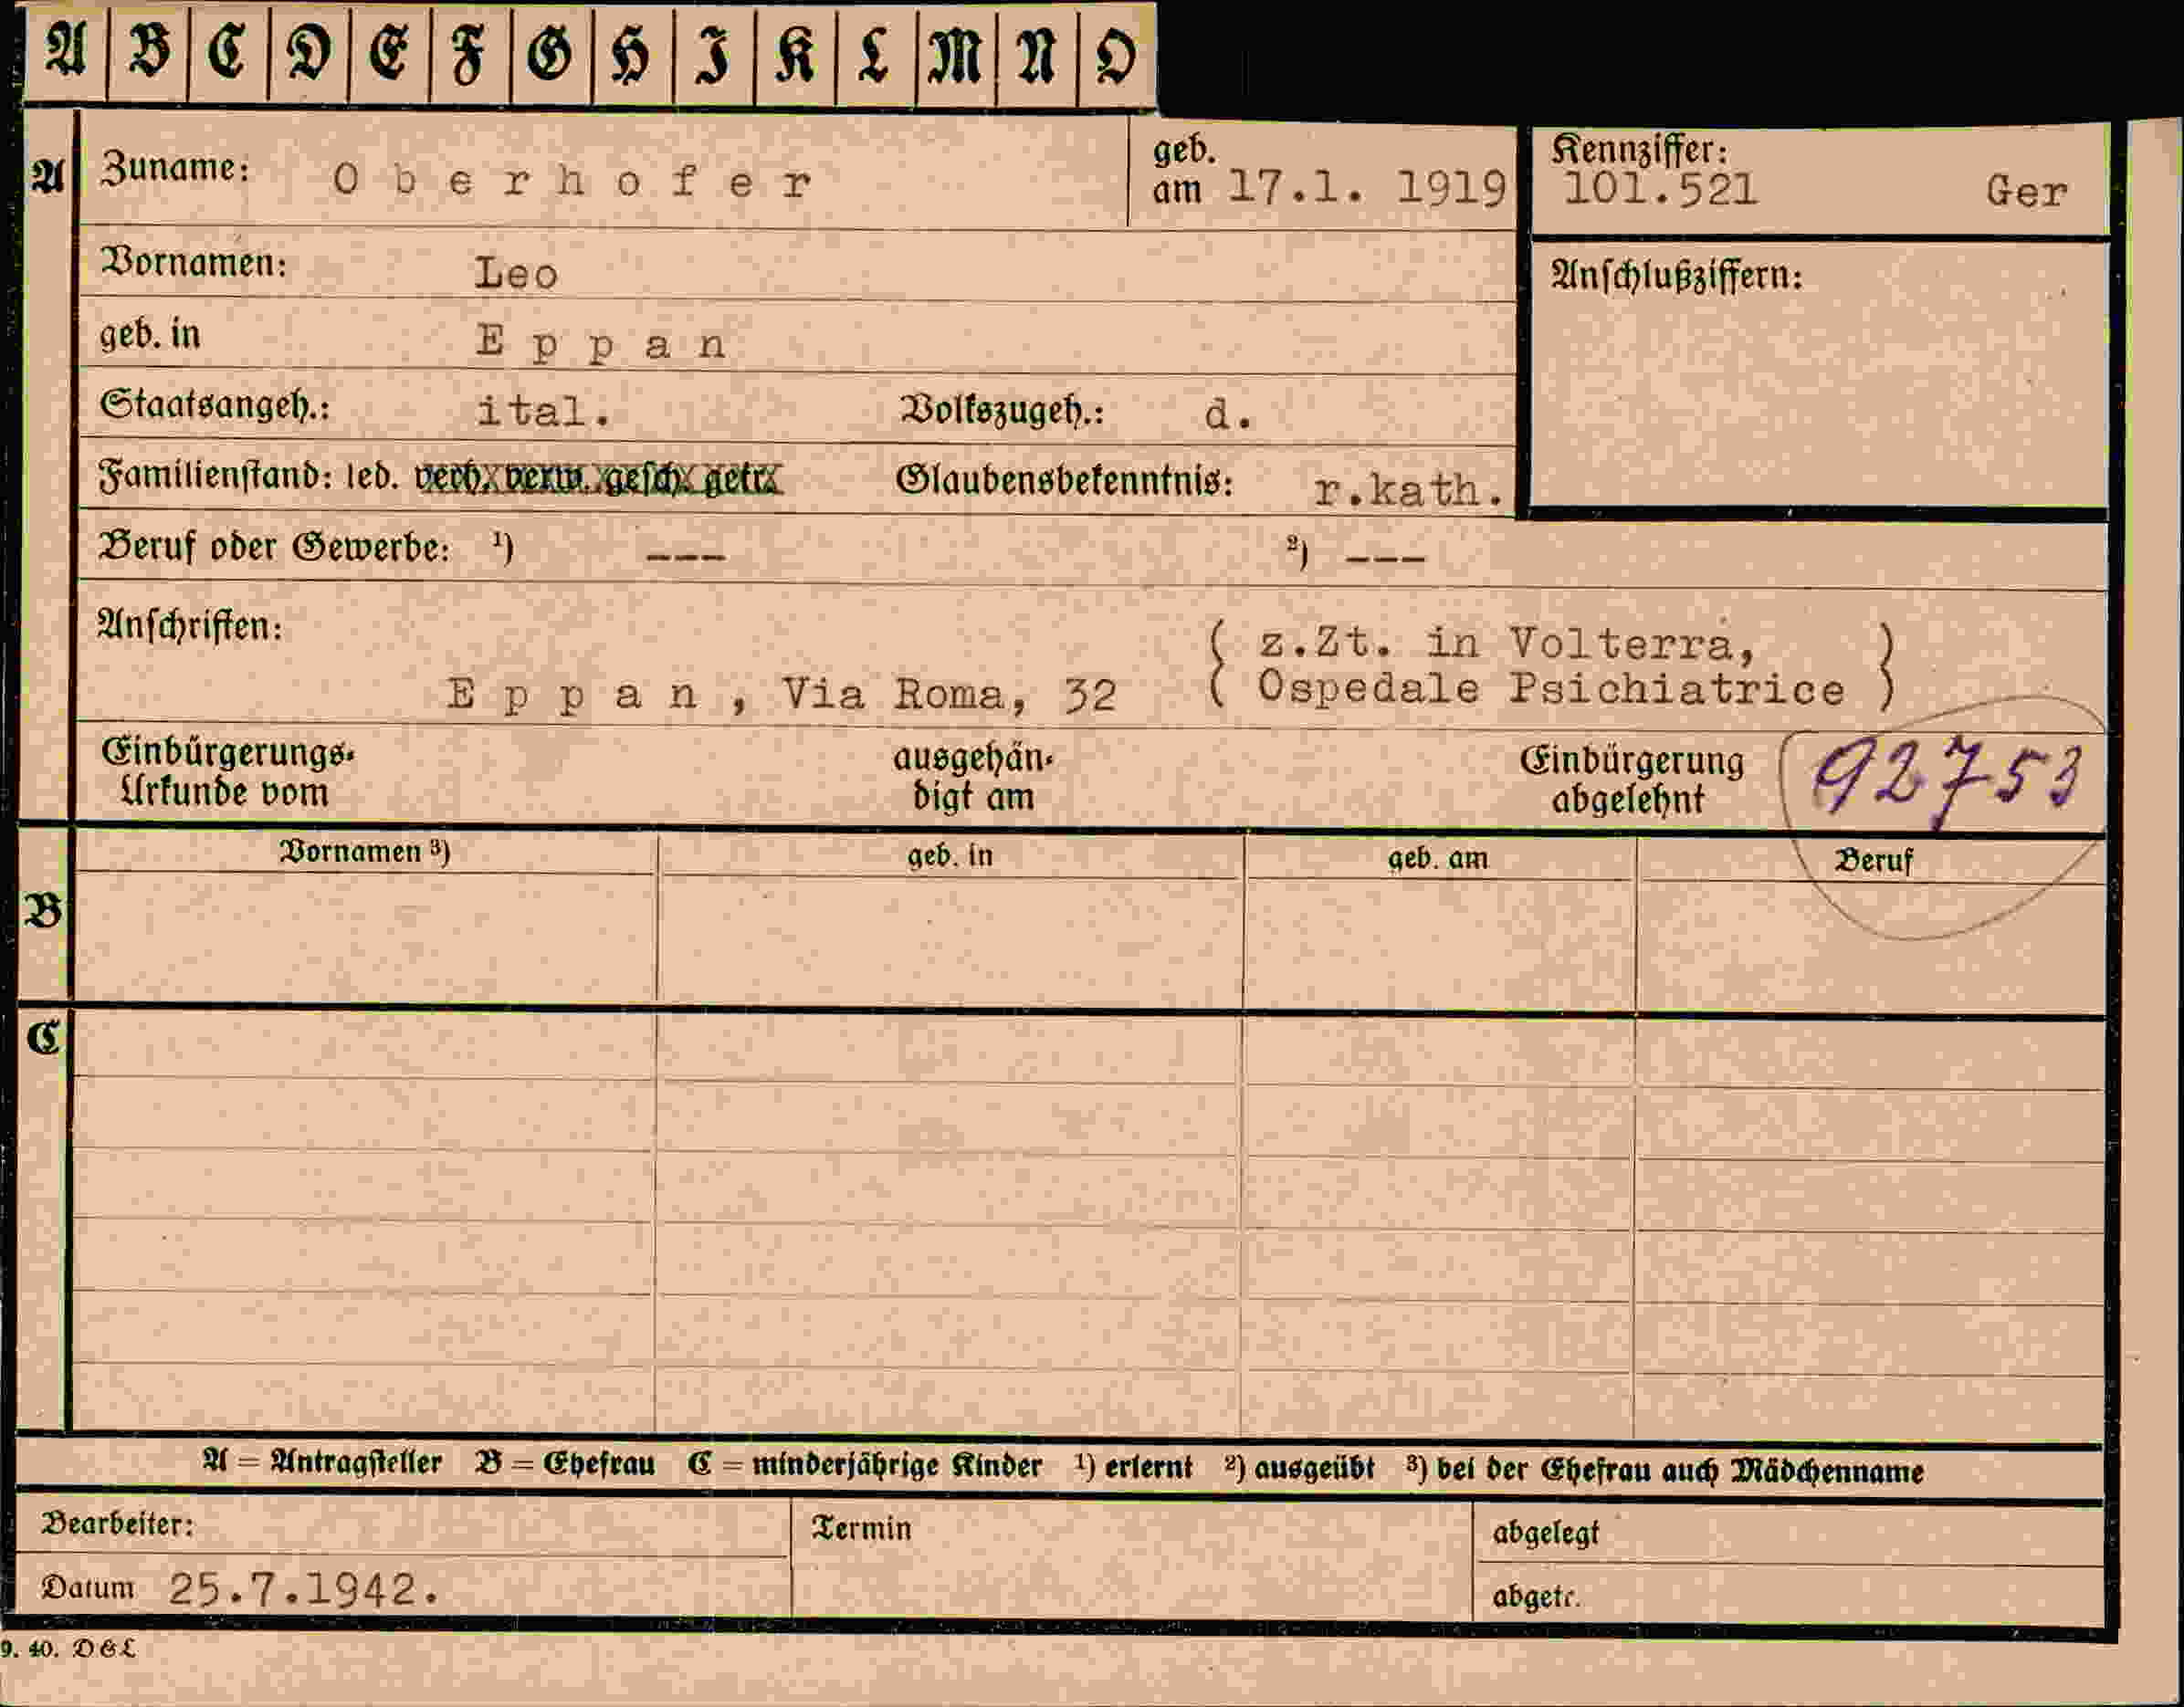 A B C D E F G H I K L M N O
A Zuname: Oberhofer geb. am 17.1. 1919 Kennziffer: 101.521 Ger
Vornamen: Leo Anschlußziffern:
geb. in Eppan
Staatsangeh.: ital. Volkszugeh.: d.
Familienstand: led. verh. verw. gesch. getr. Glaubensbekenntnis: r.kath.
Beruf oder Gewerbe: ¹) --- ²) ---
Anschriften: ( z.Zt. in Volterra, )
Eppan, Via Roma, 32 ( Ospedale Psichiatrice )
Einbürgerungs- ausgehän- Einbürgerung 92753
Urkunde vom digt am abgelehnt
Vornamen ³) geb. in geb. am Beruf
B
C
A = Antragsteller B = Ehefrau C = minderjährige Kinder ¹) erlernt ²) ausgeübt ³) bei der Ehefrau auch Mädchenname
Bearbeiter: Termin abgelegt
Datum 25.7.1942. abgetr.
9. 40. D&L